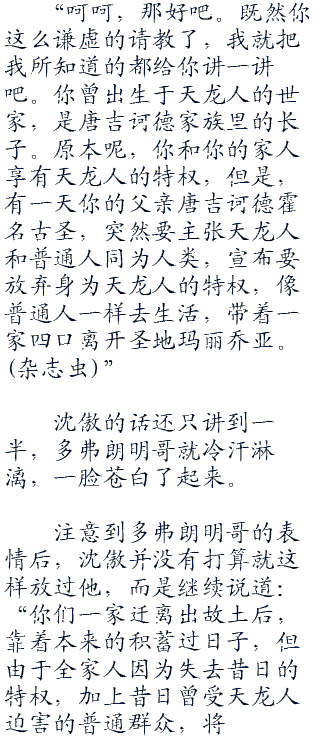 “呵呵，那好吧。既然你
这么谦虚的请教了，我就把
我所知道的都给你讲一讲
吧。你曾出生于天龙人的世
家，是唐吉诃德家族里的长
子。原本呢，你和你的家人
享有天龙人的特权，但是，
有一天你的父亲唐吉诃德霍
名古圣，突然要主张天龙人
和普通人同为人类，宣布要
放弃身为天龙人的特权，像
普通人一样去生活，带着一
家四口离开圣地玛丽乔亚。
(杂志虫)”
沈傲的话还只讲到一
半，多弗朗明哥就冷汗淋
漓，一脸苍白了起来。
注意到多弗朗明哥的表
情后，沈傲并没有打算就这
样放过他，而是继续说道：
“你们一家迁离出故土后，
靠着本来的积蓄过日子，但
由于全家人因为失去昔日的
特权，加上昔日曾受天龙人
迫害的普通群众，将